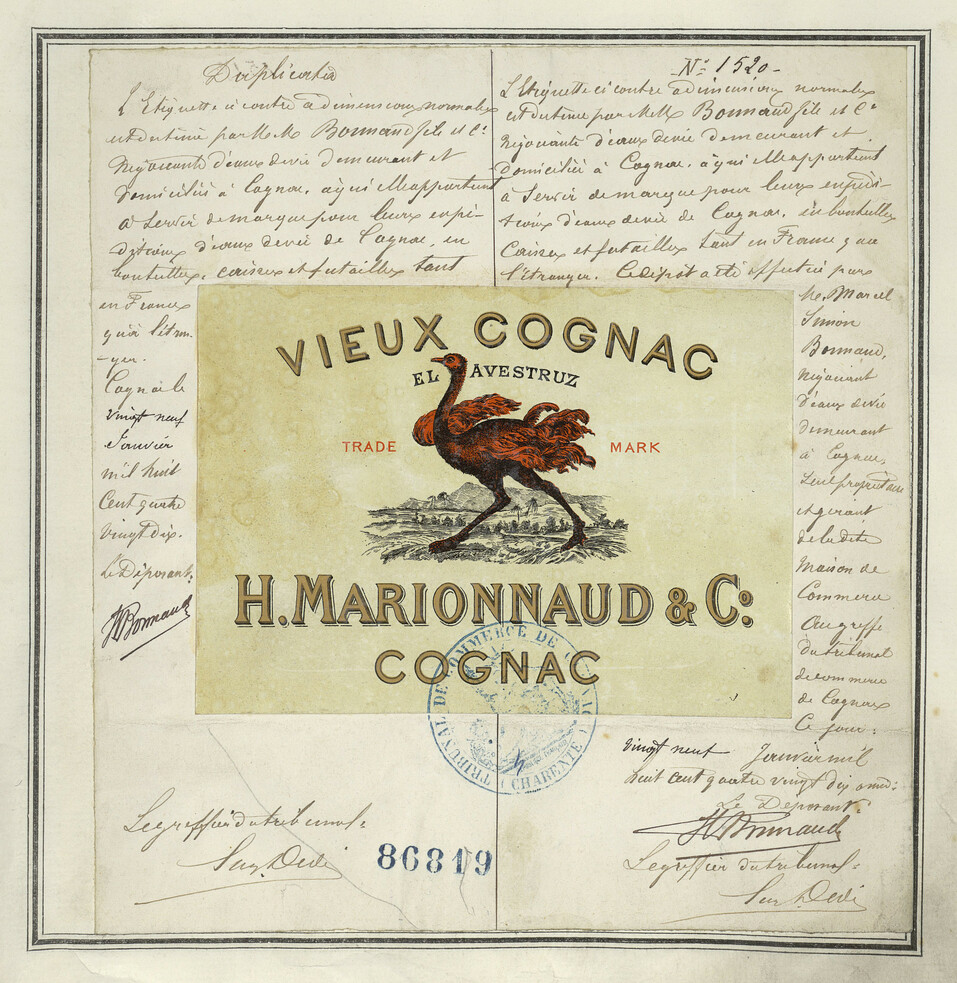 Duplicata
L'Etiquette ci contre a dimensions normales
est destinée par MM Bonnaud fils et Cie
Négociants d'eaux de vie demeurant et
domiciliés à Cognac, à qui elle appartient
à servir de marque pour leurs expé-
ditions d'eaux de vie de Cognac, en
bouteilles, caisses et futailles tant
en France
qu'à l'étran-
-ger.
Cognac le
vingt neuf
Janvier
mil huit
Cent quatre
vingt dix.
Le Déposant:
Bonnaud
Le greffier du tribunal:
No 1520-
L'Etiquette ci contre a dimensions normales
est destinée par MM Bonnaud fils et Cie
Négociants d'eaux de vie demeurant et
domiciliés à Cognac, à qui elle appartient
à servir de marque pour leurs expédi-
tions d'eaux de vie de Cognac, en bouteilles
caisses et futailles tant en France qu'à
l'étranger. Le dépôt a été effectué par
Mr. Marcel
Simon
Bonnaud,
Négociant
d'eaux de vie
demeurant
à Cognac,
seul propriétaire
et gérant
de la dite
Maison de
Commerce
au greffe
du tribunal
de commerce
de Cognac
Ce jour:
vingt neuf Janvier mil
huit cent quatre vingt dix
Le Déposant
Bonnaud
Le greffier du tribunal:
VIEUX COGNAC
EL AVESTRUZ
TRADE MARK
H. MARIONNAUD & Co:
COGNAC
TRIBUNAL DE COMMERCE DE COGNAC (CHARENTE)
86819